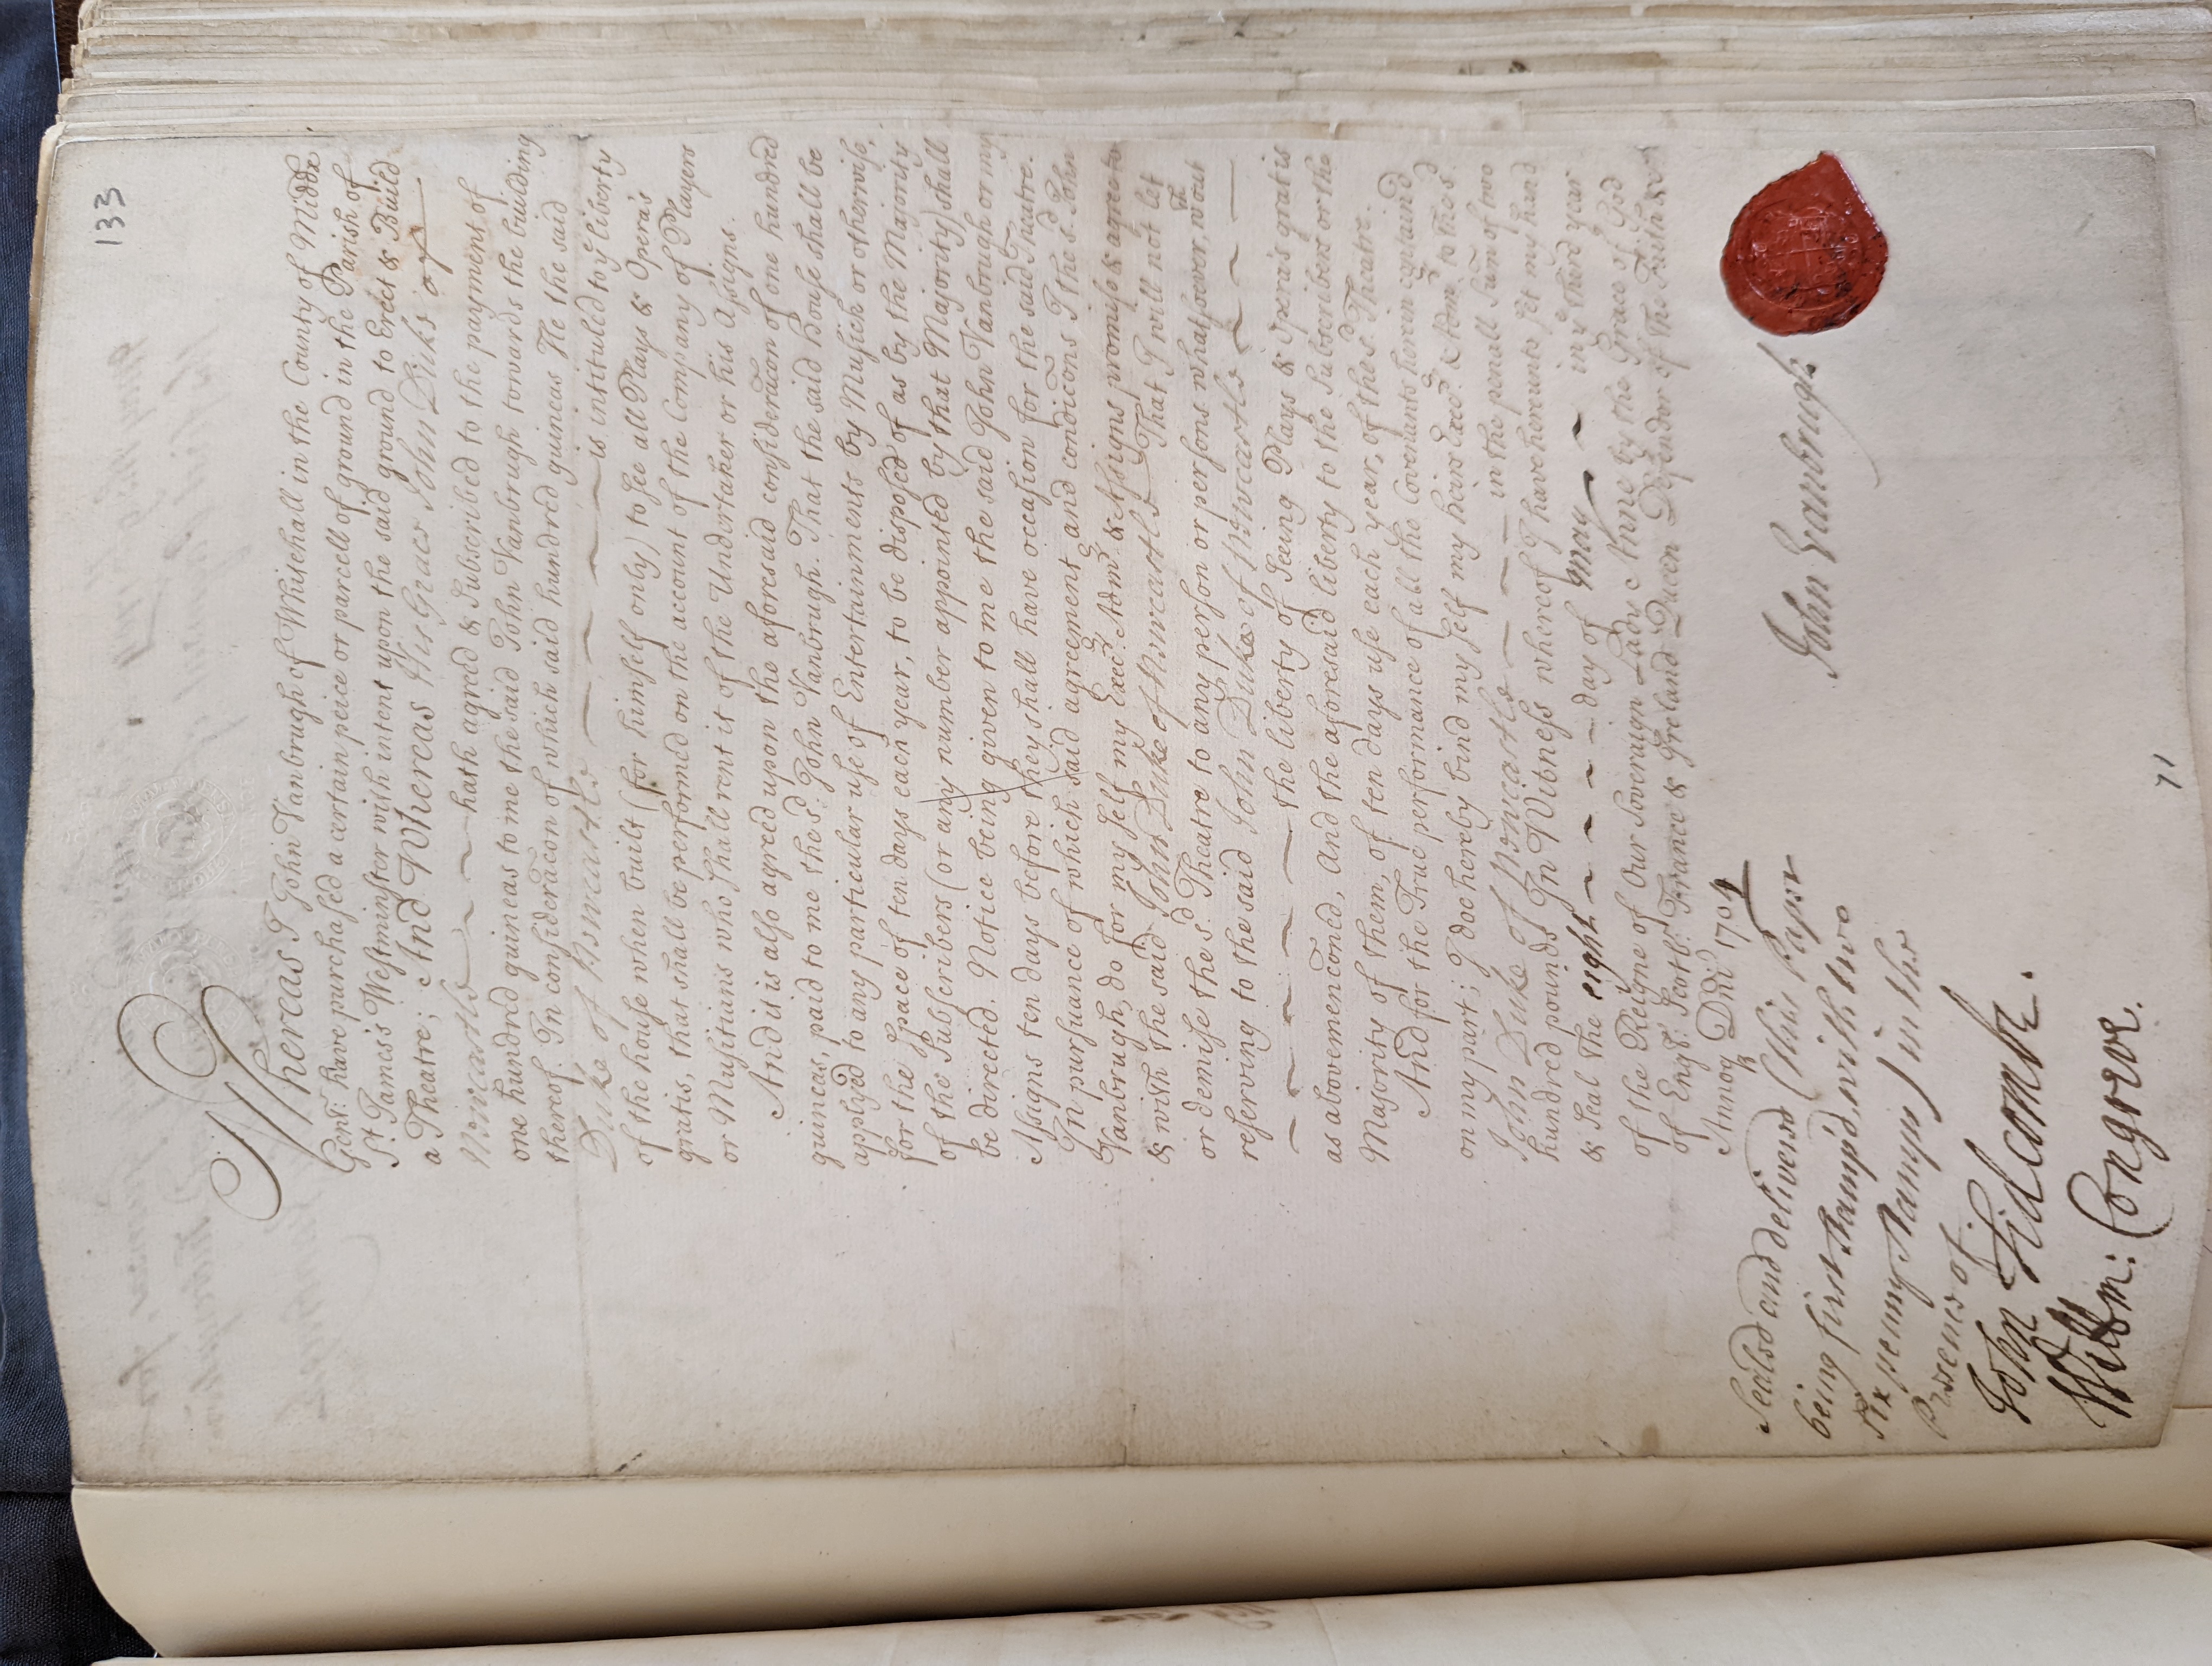 133
Whereas I John Vanbrugh of Whitehall in the County of Middx
Gent: have purchased a certain peice or parcell of ground in the Parish of
St. James's Westminster with intent upon the said ground to Erect & Build
a Theatre; And Whereas His Grace John Duke of
Newcastle hath agreed & Subscribed to the payment of
one hundred guineas to me the said John Vanbrugh towards the building
thereof. In consideracon of which said hundred guineas He the said
Duke of Newcastle is intituled to ye liberty
of the house when built (for himself only) to see all Plays & Opera's
gratis, that shall be performed on the account of the Company of Players
or Musitians who shall rent it of the Undertaker or his Assigns.
And it is also agreed upon the aforesaid consideracon of one hundred
guineas, paid to me the sd. John Vanbrugh. That the said house shall be
applyed to any particular use of Entertainments by Musick or otherwise,
for the space of ten days each year, to be disposed of as by the Majority
of the Subscribers (or any number appointed by that Majority) shall
be directed. Notice being given to me the said John Vanbrugh or my
Assigns ten days before they shall have occasion for the said Theatre.
In pursuance of which said agreement and condicons I the sd. John
Vanbrugh, do for my self my Execrs. Admrs. & Assigns promise & agree to
& with the said John Duke of Newcastle That I will not let
or demise the sd. Theatre to any person or persons whatsoever, wthout
reserving to the said John Duke of Newcastle
the liberty of seeing Plays & Opera's gratis
as abovemenconed, And the aforesaid liberty to the Subscribers or the
Majority of them, of ten days use each year, of the sd. Theatre.
And for the True performance of all the Covenants herein contained
on my part; I doe hereby bind my self my heirs Execrs. & Admrs. to the sd.
John Duke of Newcastle in the penall Sum of two
hundred pounds In Witness whereof I have hereunto set my hand
& Seal The eight day of May in ye third year
of the Reigne of Our Soveraign Lady Anne by the Grace of God
of Engd. Scotld. France & Ireland Queen Defender of the Faith &c
Annoq Dni 1704
Sealed and delivered (this Paper
being first stamp'd with two
six penny stamps) in the
Presence of
John Tidcombe.
Willm: Congreve.
John Vanbrugh
71